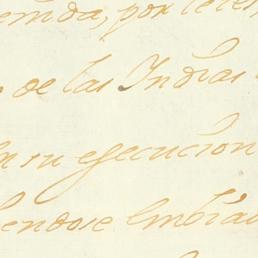 erida, por
de las Indias
en su egecucion
endose embia